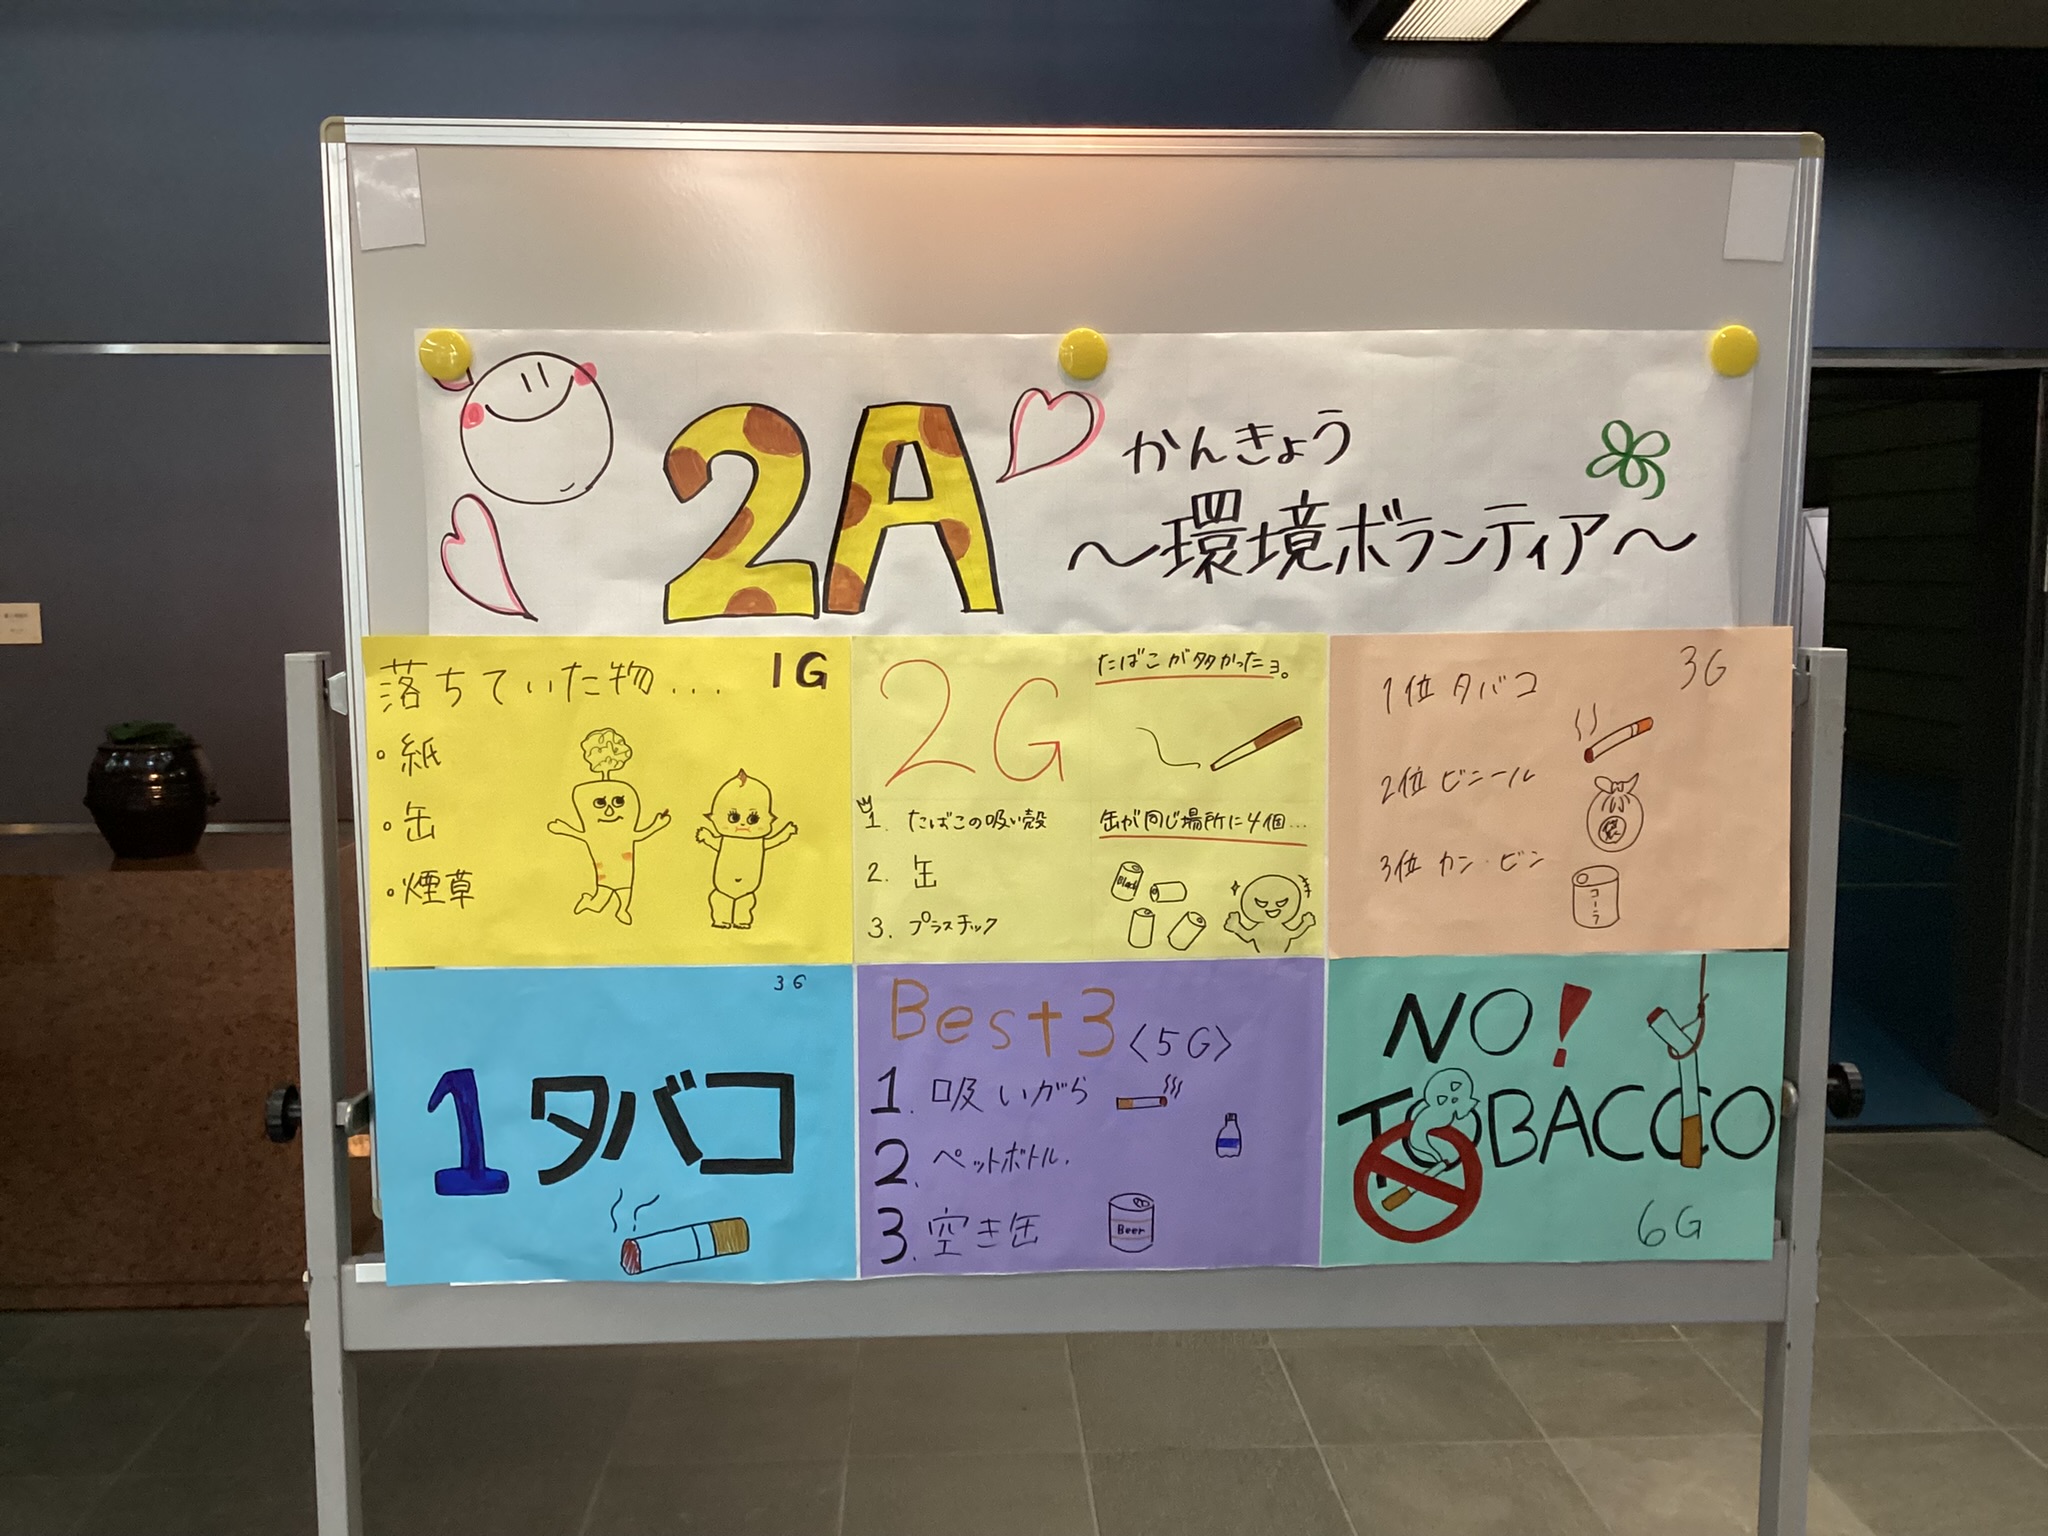 2A
かんきょう
～環境ボランティア～
落ちていた物... 1G
・紙
・缶
・煙草
2G
たばこが多かったョ。
1. たばこの吸い殻
2. 缶
3. プラスチック
缶が同じ場所に4個...
Black
3G
1位 タバコ
2位 ビニール
袋
3位 カン・ビン
コーラ
3G
1 タバコ
Best3 〈5G〉
1. 吸いがら
2. ペットボトル.
3. 空き缶
Beer
NO!
TOBACCO
6G